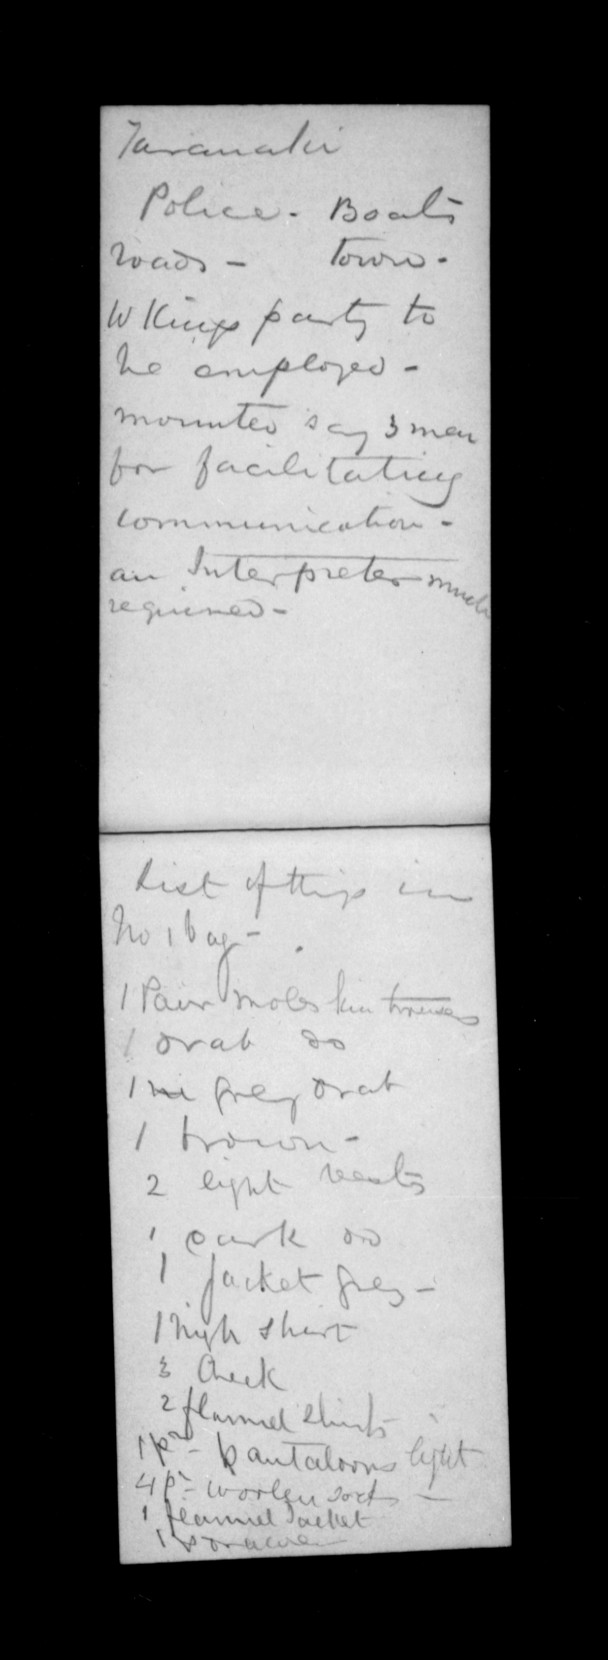 Taranaki
Police - Boats
roads - town -
W Kings party to
be employed -
mounted say 3 men
for facilitating
communication -
an Interpreter much
required -
List of things in
No 1 bag -
1 Pair moleskin trousers
1 drab do
1 grey drab
1 brown -
2 light vests
1 dark do
1 Jacket grey -
1 night shirt
3 Check
2 flannel shirts
1 pr - pantaloons light
4 pr - woolen socks -
1 flannel Jacket
1